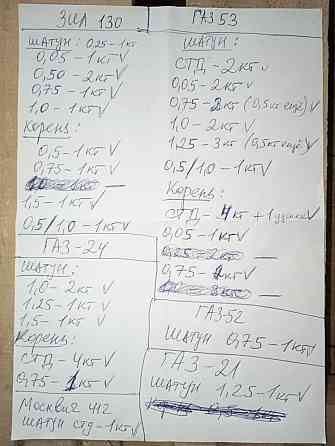 ЗИЛ 130
шатун: 0,25-1кт
0,05-1кт V
0,50-2кт V
0,75-1кт V
1,0-1кт V
Корень:
0,5-1кт V
0,75-1кт V
1,5-1кт V
0,5/1,0-1кт V
ГАЗ-24
шатун:
1,0-2кт V
1,25-1кт V
1,5-1кт V
Корень:
СТД-4кт V
0,75-1кт V
Москвич 412
шатун стд-1кт V
ГАЗ 53
шатун:
СТД-2кт V
0,05-2кт V
0,75-2кт (0,5кт ещё) V
1,0-2кт V
1,25-3кт (0,5кт ещё) V
0,5/1,0-1кт V
Корень:
СТД-4кт + 1
0,05-1кт V
0,25-2кт
0,75-1кт V
ГАЗ-52
шатун 0,75-1кт V
ГАЗ-21
шатун 1,25-1кт V